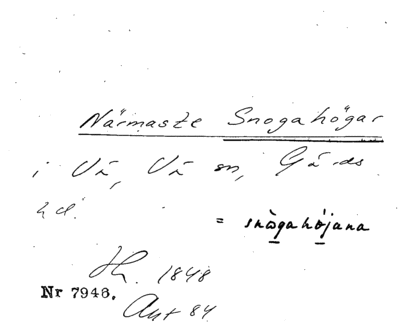 Närmaste Snogahögar
i Vä, Vä sn, Gärds
hd.
= snògahö́jana
Hh. 1848
Nr 7946.
Akt 84